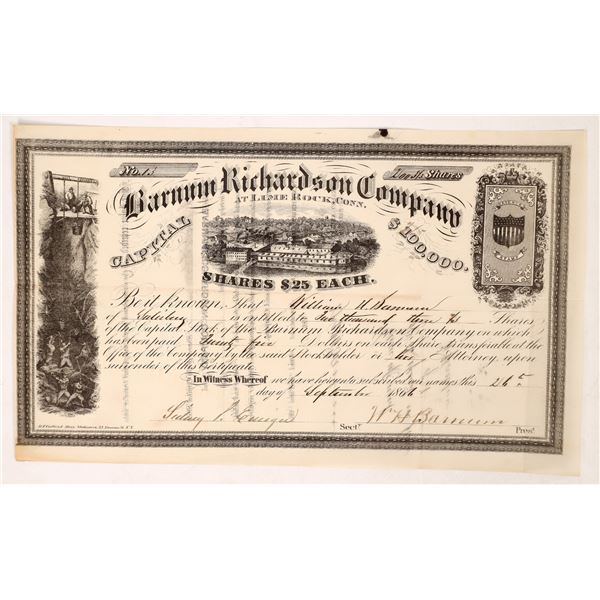 No. 13
Shares
Barnum Richardson Company
AT LIME ROCK, CONN.
CAPITAL $100,000.
SHARES $25 EACH.
Be it Known, That William H Barnum
of Salisbury is entitled to Two thousand Shares
of the Capital Stock of the Barnum Richardson Company on which
has been paid Twenty five Dollars on each Share transferable at the
Office of the Company by the said Stockholder or his Attorney upon
surrender of this Certificate.
In Witness Whereof we have hereunto subscribed our names this 26th
day of September 1866
Sect. W H Barnum Prest.